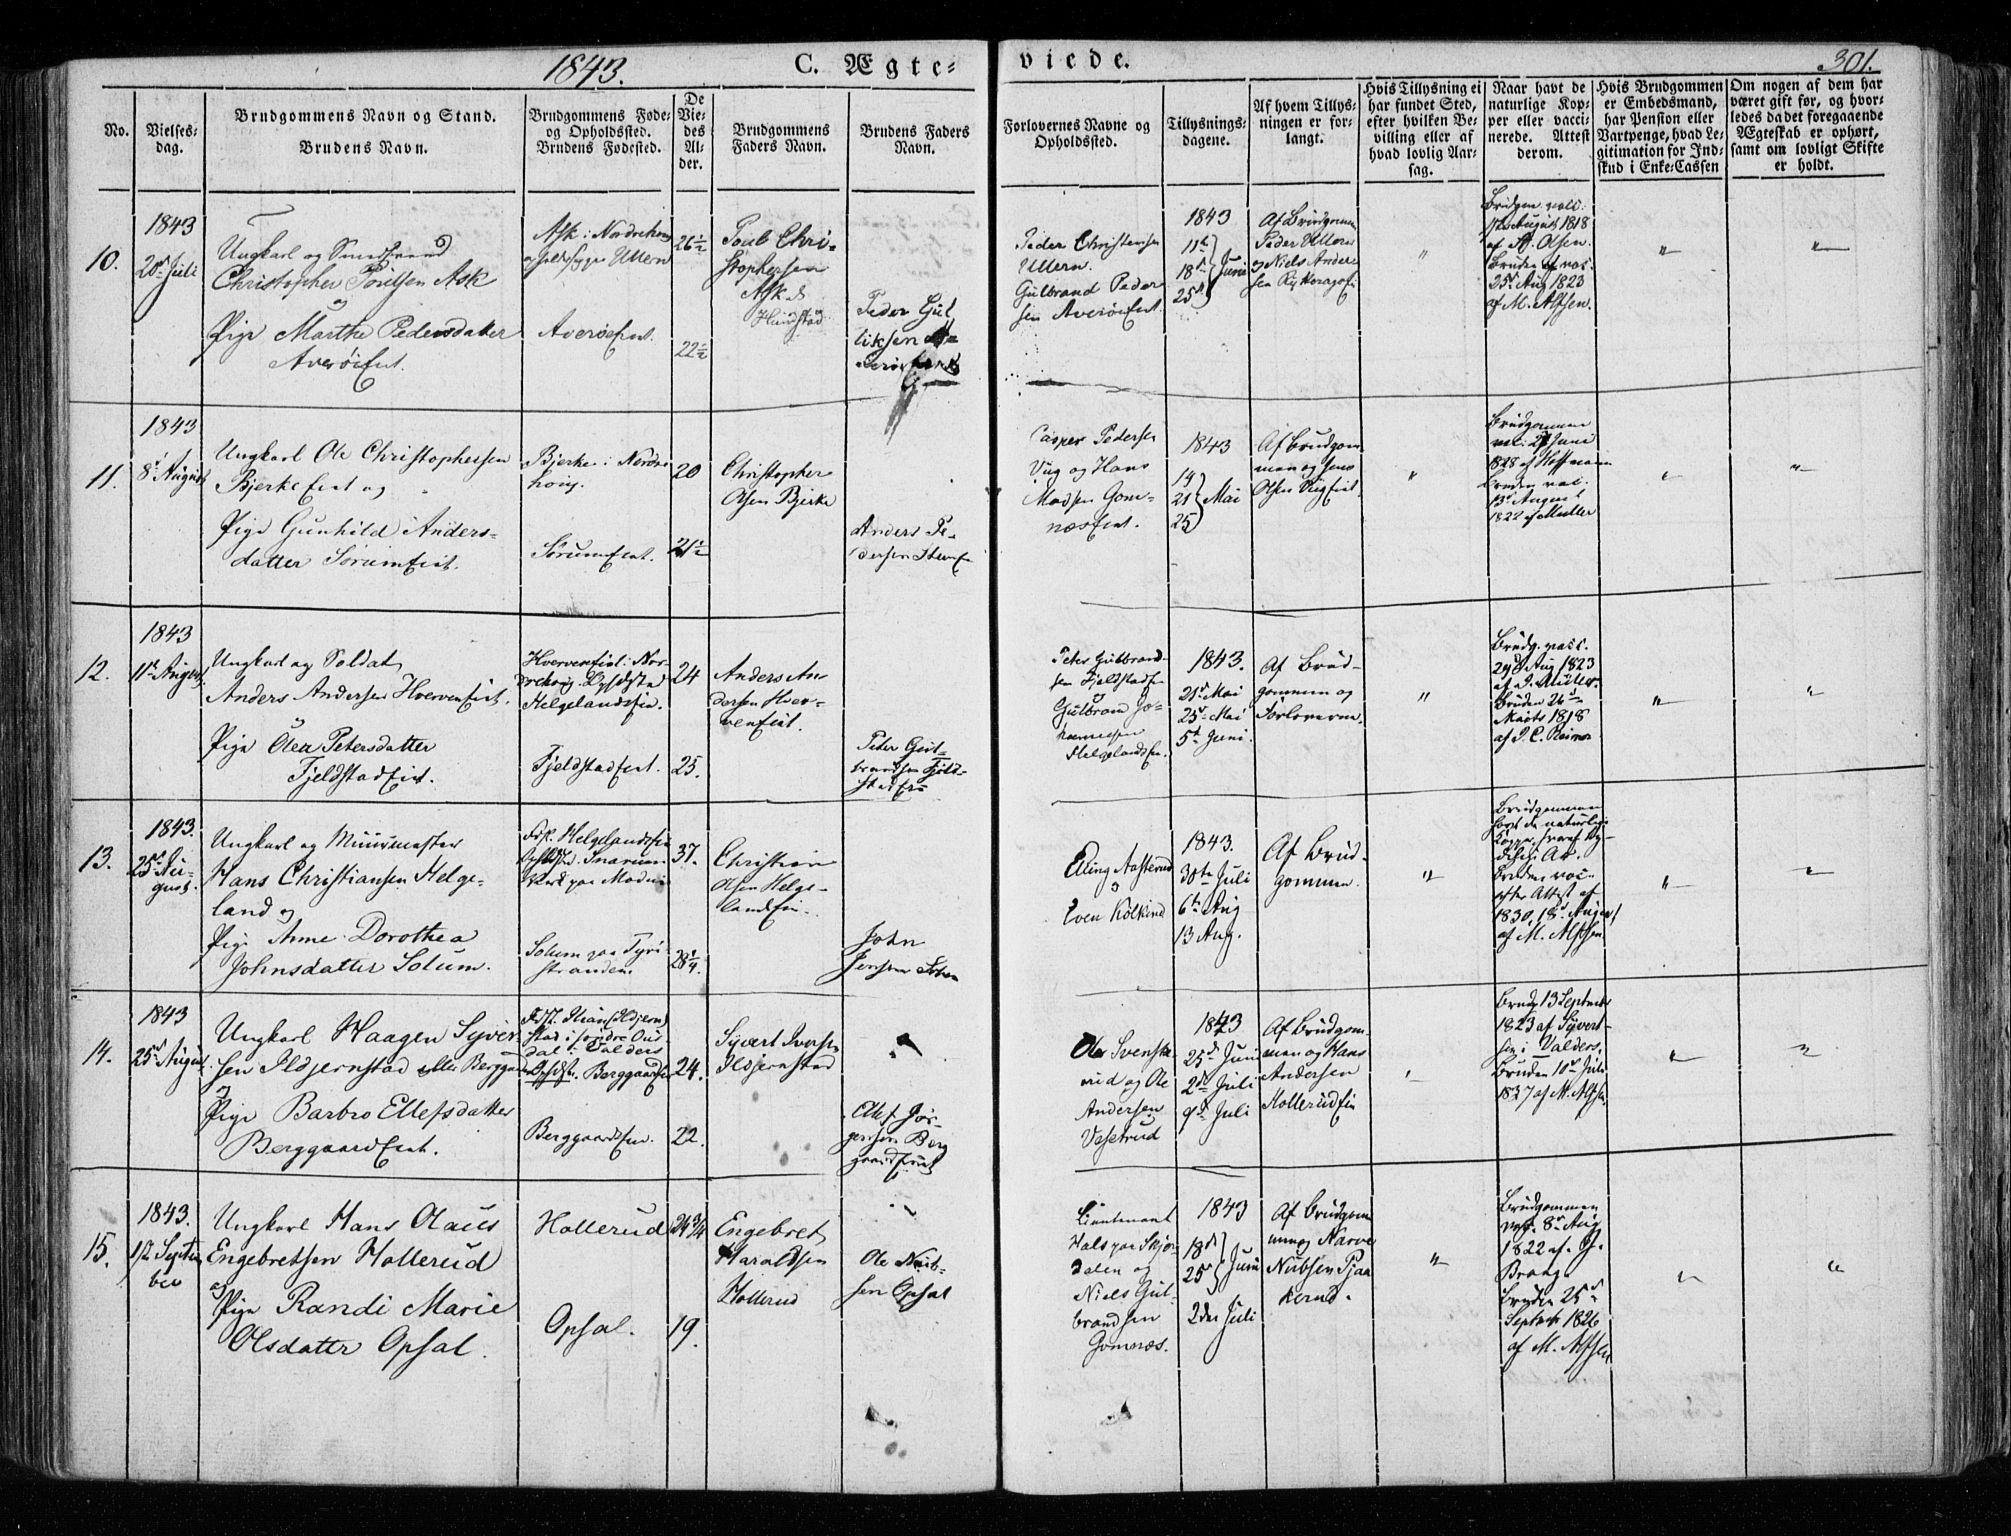 1843. C. Ægte- viede. 301.
No.
Vielses-
dag.
Brudgommens Navn og Stand.
Brudens Navn.
Brudgommens Føde-
og Opholdssted.
Brudens Fødested.
De
Vie-
des
Al-
der.
Brudgommens
Faders Navn.
Brudens Faders
Navn.
Forlovernes Navne og
Opholdssted.
Tillysnings-
dagene.
Af hvem Tillys-
ningen er for-
langt.
Hvis Tillysning ei
har fundet Sted,
efter hvilken Be-
villing eller af
hvad lovlig Aar-
sag.
Naar havt de
naturlige Kop-
per eller vacci-
nerede. Attest
derom.
Hvis Brudgommen
er Embedsmand,
har Pension eller
Vartpenge, hvad Le-
gitimation for Ind-
skud i Enke-Cassen
Om nogen af dem har
været gift før, og hvor-
ledes da det foregaaende
Ægteskab er ophørt,
samt om lovligt Skifte
er holdt.
10.
1843
20de Juli
Ungkarl og
Christopher Poulsen Ask
og
Pige Marthe Pedersdatter
Averøeeiet.
Ask i Nordrehoug
Ullern
Averøeeiet.
26½
22½
Poul Chri-
stophersen
Ask
Peder Gul
liksen
Peder Christensen
Ullern.
Gulbrand Peder
sen Averøeeiet.
1843
11te
18de Juni
25de
Af Brudgommen
Peder Ullern
og Niels Ander-
sen
Brudgom. vacc.
12te August 1818
af A. Olsen.
Bruden af vac.
25de Aug 1823
af M. Alfsen.
11.
1843
8de August
Ungkarl Ole Christophersen
Bjerkeeiet og
Pige Gunhild Anders-
datter Sørumeiet.
Bjerke i Nordre
houg.
Sørumeiet.
20
21½
Christopher
Olsen Bjerke
Anders Pe-
dersen
Casper Pedersen
Vug og Hans
Madsen Gom-
næseiet.
1843
14
21 Mai
25
Af Brudgom-
men og Jens
Olsen Vugeiet.
Brudgommen
vac: 27 Juni
1828 af Hoffmann
Bruden vac.
13de August
1822 af Müller
12.
1843
11te August
Ungkarl og Soldat
Anders Andersen Hverveneiet.
Pige Olea Petersdatter
Fjeldstadeiet.
Hverveneiet i Nor-
drehoug. Opholdssted
Helgelandseiet.
Fjeldstadeiet.
24
25.
Anders An
dersen Hver-
veneiet.
Peder Gul-
brandsen Fjeld-
stadeiet
Peter Gulbrand-
sen Fjeldstadeiet
og
Gulbran Jo-
hannesen
Helgelandseie.
1843.
21de Mai
25de Mai
5te Juni.
Af Brud-
gommen og
Forloverne.
Brudg. vacc.
29de Aug 1823
af J. Müller
Bruden 26de
Marts 1818
af P. C. Reiner
13.
1843.
25de Au-
gust.
Ungkarl og Muurmester
Hans Christiansen Helge-
land og
Pige Anne Dorothea
Johnsdatter Solum.
Fsk. Helgelandseie
Opholdst. Snarum
Værk paa Modum
Solum paa Tyri-
stranden
37.
28¼.
Christian
Olsen Helge-
landeie.
John
Jensen Solum
Elling Aasterud
og
Even Kölkind
1843.
30te Juli
6te Aug
13 Aug.
Af Brud-
gommen.
Brudgommen
havt de naturlige
Kopper, hvoraf ty-
delige Ar.
Bruden vac.
efter Attest af
1830, 18de August
af M. Alfsen
14.
1843
25de August
Ungkarl Haagen Syver
sen Ildjernstad eller Berggaard
og
Pige Barbro Ellefsdatter
Berggaardeiet.
Ildjern
stad i søndre Our
dal i Valders
Opholdst. Berggaardseie
Berggaardseiet.
24.
22.
Syvert Iversen
Ildjernstad
Ellef Jør-
gensen Berg
gaardseiet
Ole Svenske-
rud og Ole
Andersen
Vesterud
1843
25de Juni
2den Juli
9de Juli
Af Brudgom-
men og Hans
Andersen
Hollerudeie
Brudg 13 Septembr
1823 af Syvert-
sen i Valders,
Bruden 10de Juli
1837 af M. Alfsen
15.
1843.
1/12 Septem
ber
Ungkarl Hans Olaus
Engebretsen Hollerud
og
Pige Randi Marie
Olsdatter Opsal.
Hollerud
Opsal.
24¾
19.
Engebret
Haraldsen
Hollerud
Ole Nub-
sen Opsal
Lieutenant
Hals paa Skjør
dalen og
Niels Gul-
brandsen
Gomnæs.
1843
18de
25de Juni
2den Juli
Af Brudgom
men og Narve
Nubsen Pjaa
kerud.
Brudgommen
vac. 8de Aug
1822 af J.
Brong.
Bruden 25de
Septembr 1826
af M. Alfsen